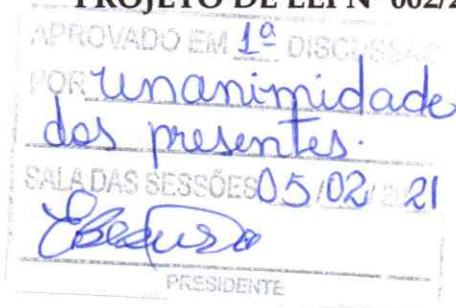 PROJETO DE LEI Nº 002/2
APROVADO EM 1ª DISCUSSÃO
POR unanimidade
dos presentes.
SALA DAS SESSÕES 05/02/21
PRESIDENTE